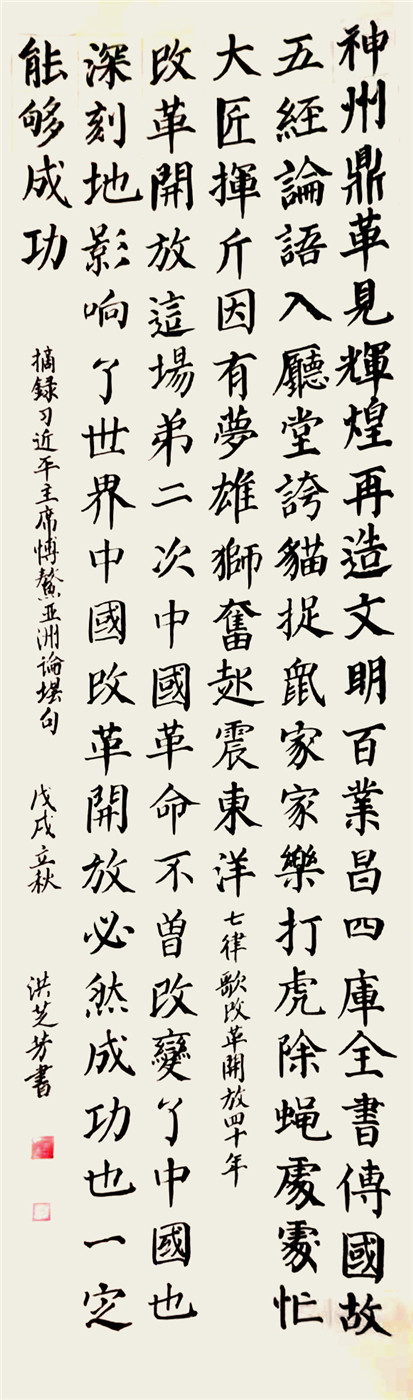 神州鼎革見輝煌再造文明百業昌四庫全書傳國故
五經論語入廳堂誇貓捉鼠家家樂打虎除蝇處處忙
大匠揮斤因有夢雄獅奮起震東洋 七律歌改革開放四十年
改革開放這場弟二次中國革命不曾改變了中國也
深刻地影响了世界中國改革開放必然成功也一定
能够成功 摘録习近平主席愽鰲亚洲论堪句 戊戌立秋 洪芝芳書